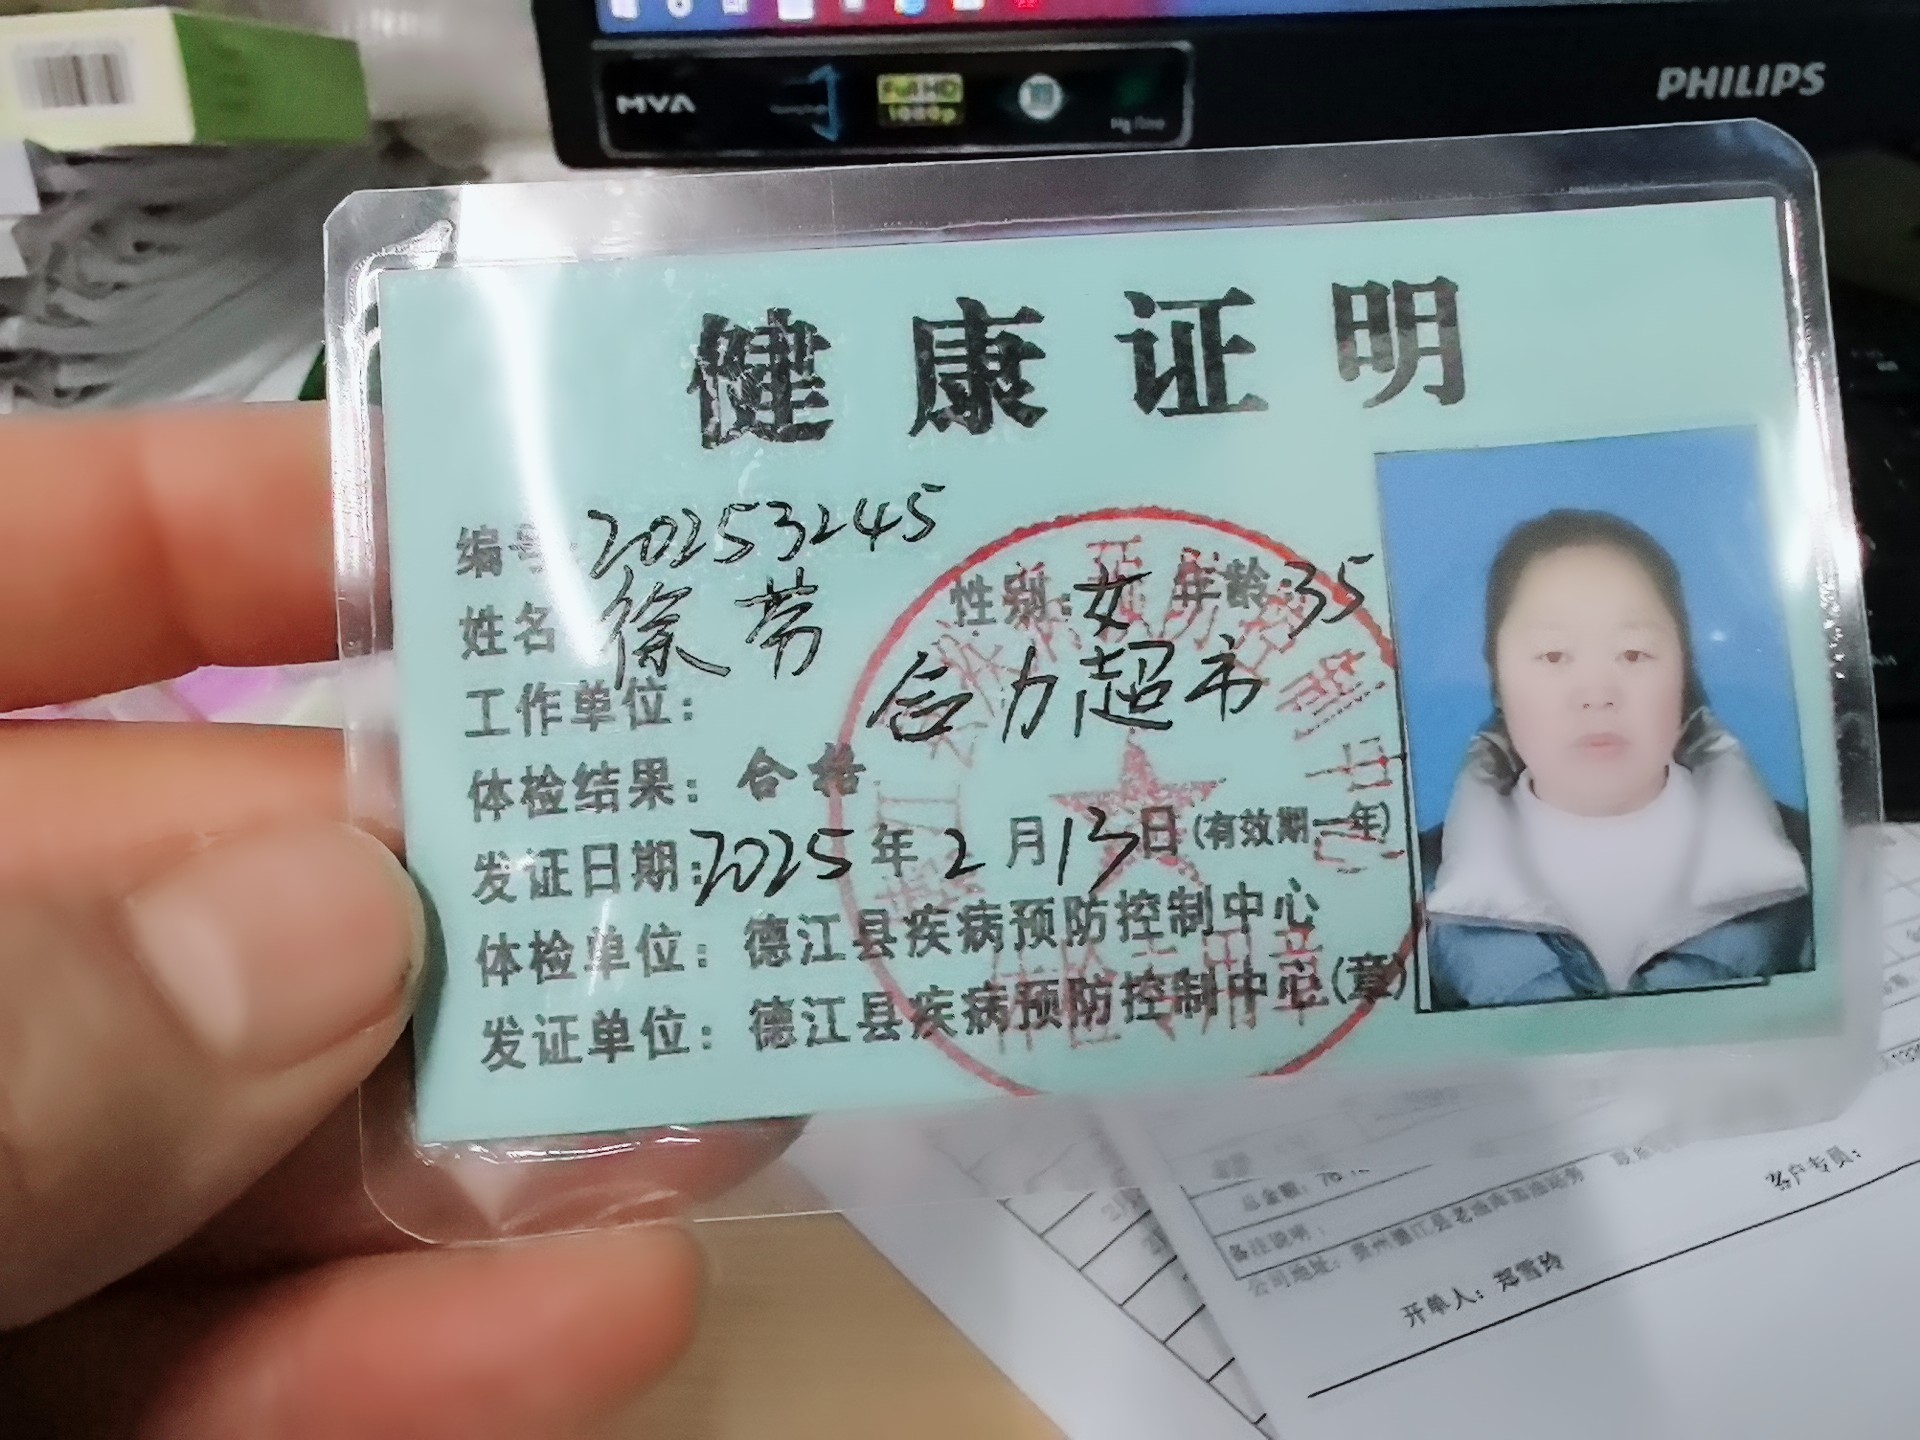 MVA
Full HD
1080p
PHILIPS
健康证明
编号:20253245
姓名 徐芳 性别:女 年龄:35
工作单位: 合力超市
体检结果: 合格
发证日期:2025年2月13日(有效期一年)
体检单位: 德江县疾病预防控制中心
发证单位: 德江县疾病预防控制中心(章)
客户专员:
备注说明:
开单人: 郑雪玲